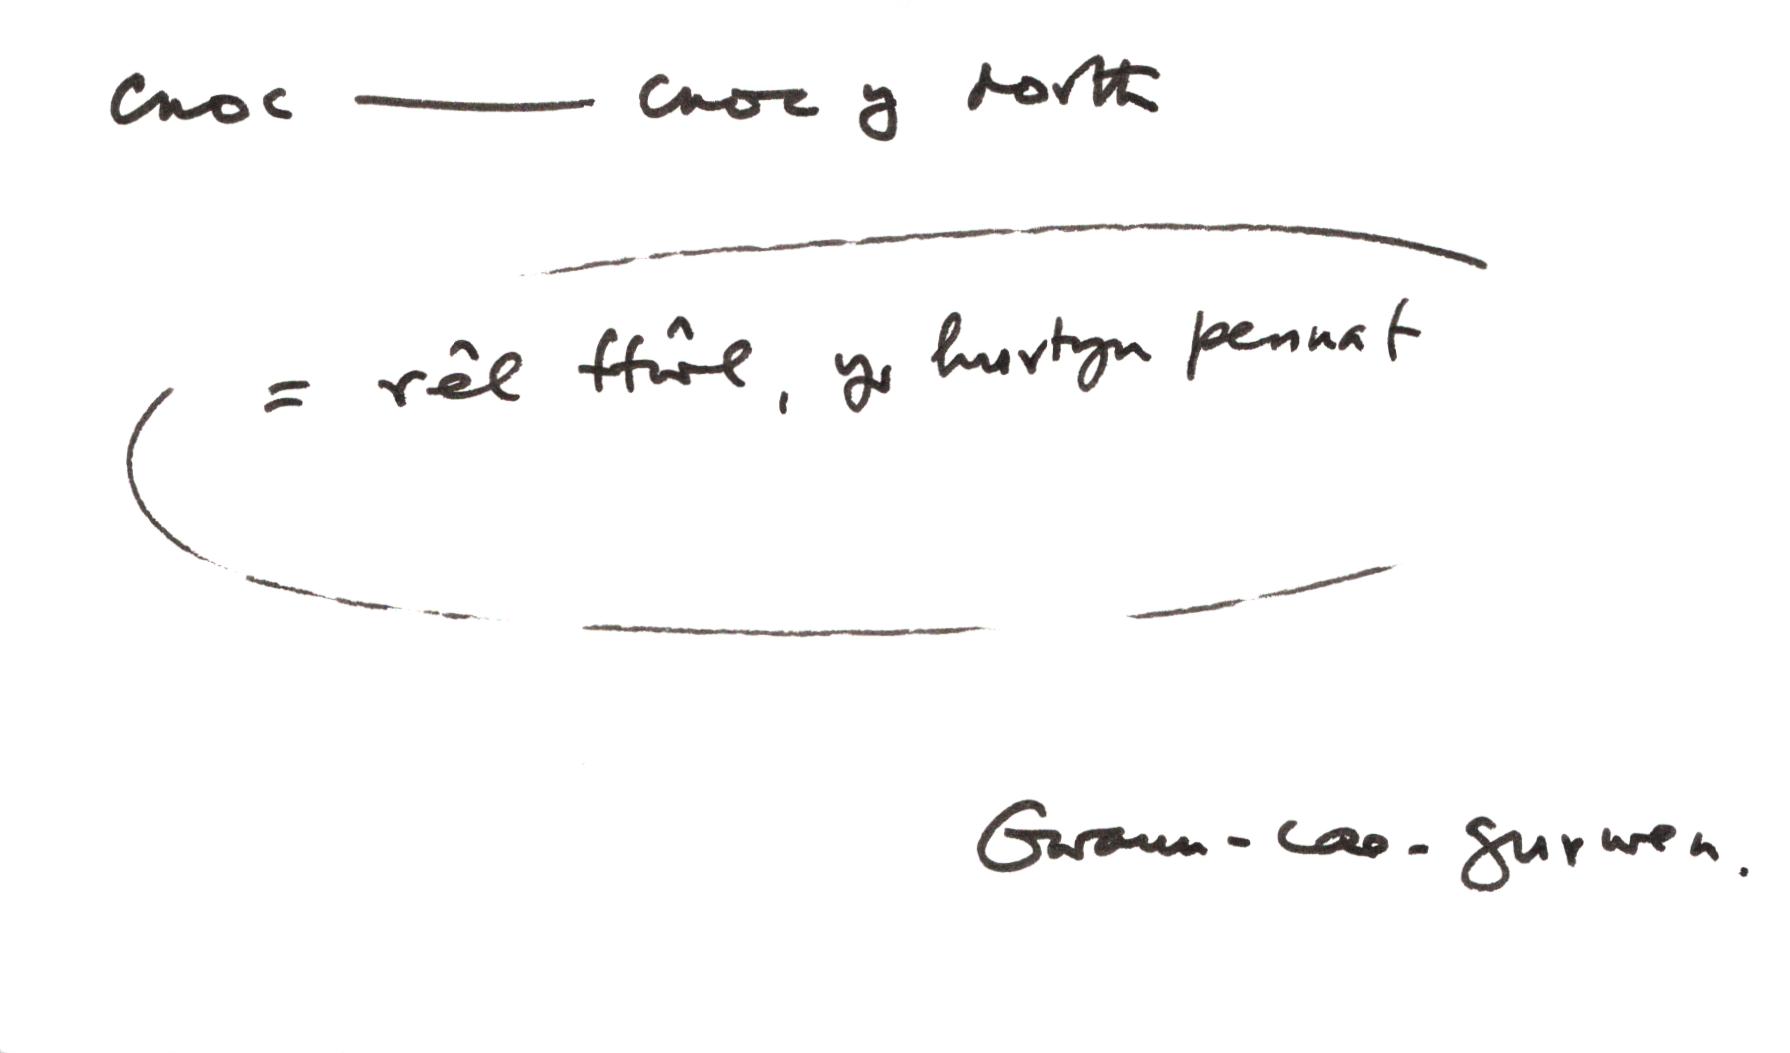 cnoc — cnoc y north
= rêl ffŵl, yr hurtyn pennaf
Gwaun-cae-gurwen.